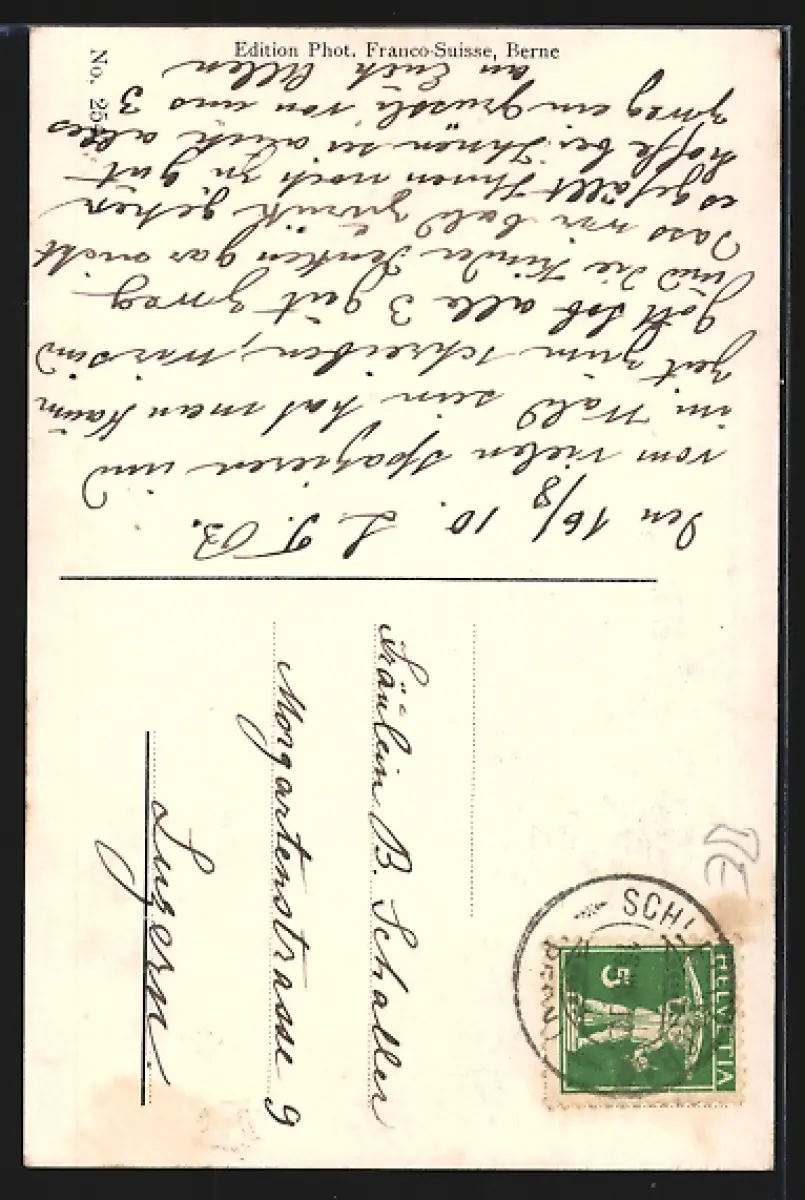 Edition Phot. Franco-Suisse, Berne
No. 254
Den 16/8 10. L. T. B.
vom vielen Spazieren und
im Wald sein hat man kaum
Zeit zum schreiben, wir sind
Gott Lob alle 3 gut zweg
und die Kinder denken gar nicht
dass wir bald zurück gehen
es gefällt Ihnen noch zu gut
hoffe bei Ihnen sei auch alles
zweg ein Grüssli von uns 3
an Euch Allen
Fräulein B. Schaller
Morgartenstrasse 9
Luzern.
SCHL
(BERN)
HELVETIA
5